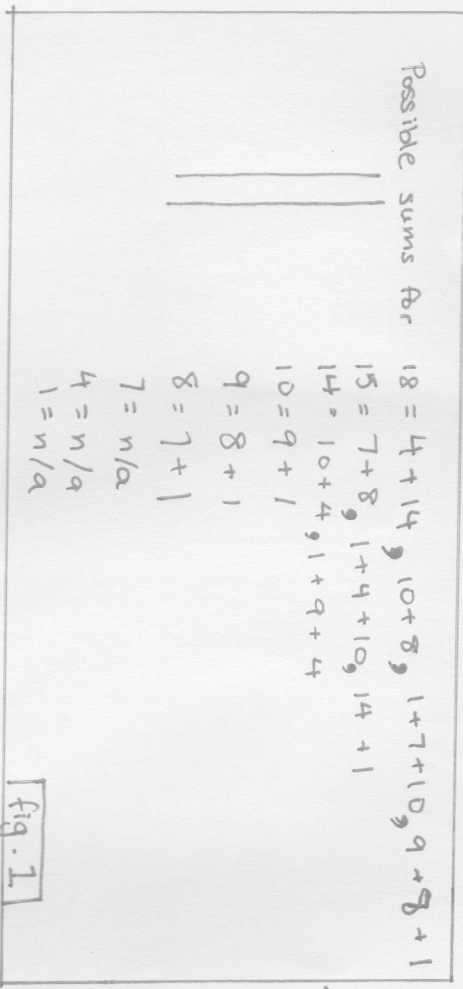 Possible sums for 18 = 4 + 14, 10+8, 1+7+10, 9+8+1
15 = 7+8, 1+4+10, 14 +1
14 = 10+4, 1+9+4
10 = 9 + 1
9 = 8 + 1
8 = 7 + 1
7 = n/a
4 = n/a
1 = n/a
fig. 1